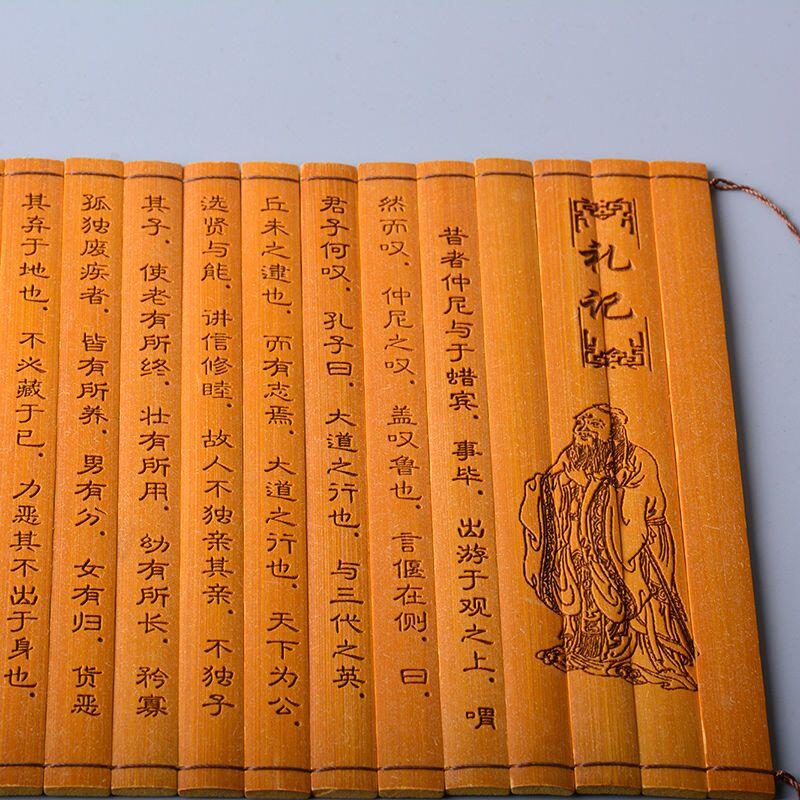 礼记
昔者仲尼与于蜡宾．事毕．出游于观之上．喟
然而叹．仲尼之叹．盖叹鲁也．言偃在侧．曰．
君子何叹．孔子曰．大道之行也．与三代之英．
丘未之逮也．而有志焉．大道之行也．天下为公．
选贤与能．讲信修睦．故人不独亲其亲．不独子
其子．使老有所终．壮有所用．幼有所长．矜寡
孤独废疾者．皆有所养．男有分．女有归．货恶
其弃于地也．不必藏于己．力恶其不出于身也．